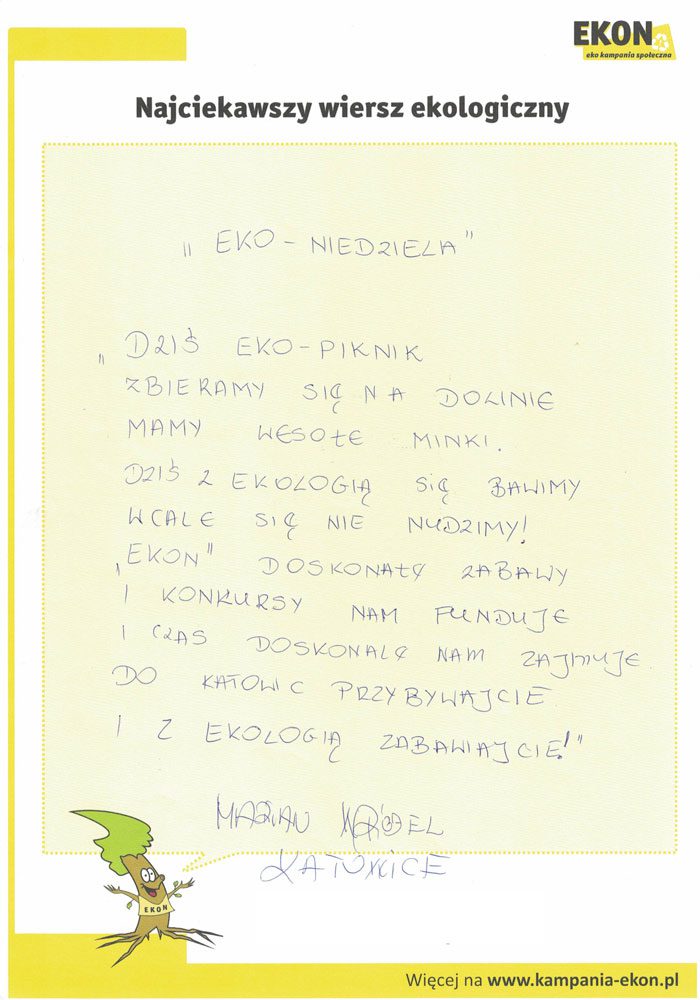 EKON
eko kampania społeczna
Najciekawszy wiersz ekologiczny
„ EKO - NIEDZIELA"
„ DZIŚ EKO-PIKNIK
ZBIERAMY SIĘ NA DOLINIE
MAMY WESOŁE MINKI.
DZIŚ Z EKOLOGIĄ SIĘ BAWIMY
WCALE SIĘ NIE NUDZIMY!
„EKON" DOSKONAŁĘ ZABAWY
I KONKURSY NAM FUNDUJE
I CZAS DOSKONALĘ NAM ZAJMUJE.
DO KATOWIC PRZYBYWAJCIE
I Z EKOLOGIĄ ZABAWIAJCIE!"
MARIAN WRÓBEL
KATOWICE
EKON
Więcej na www.kampania-ekon.pl